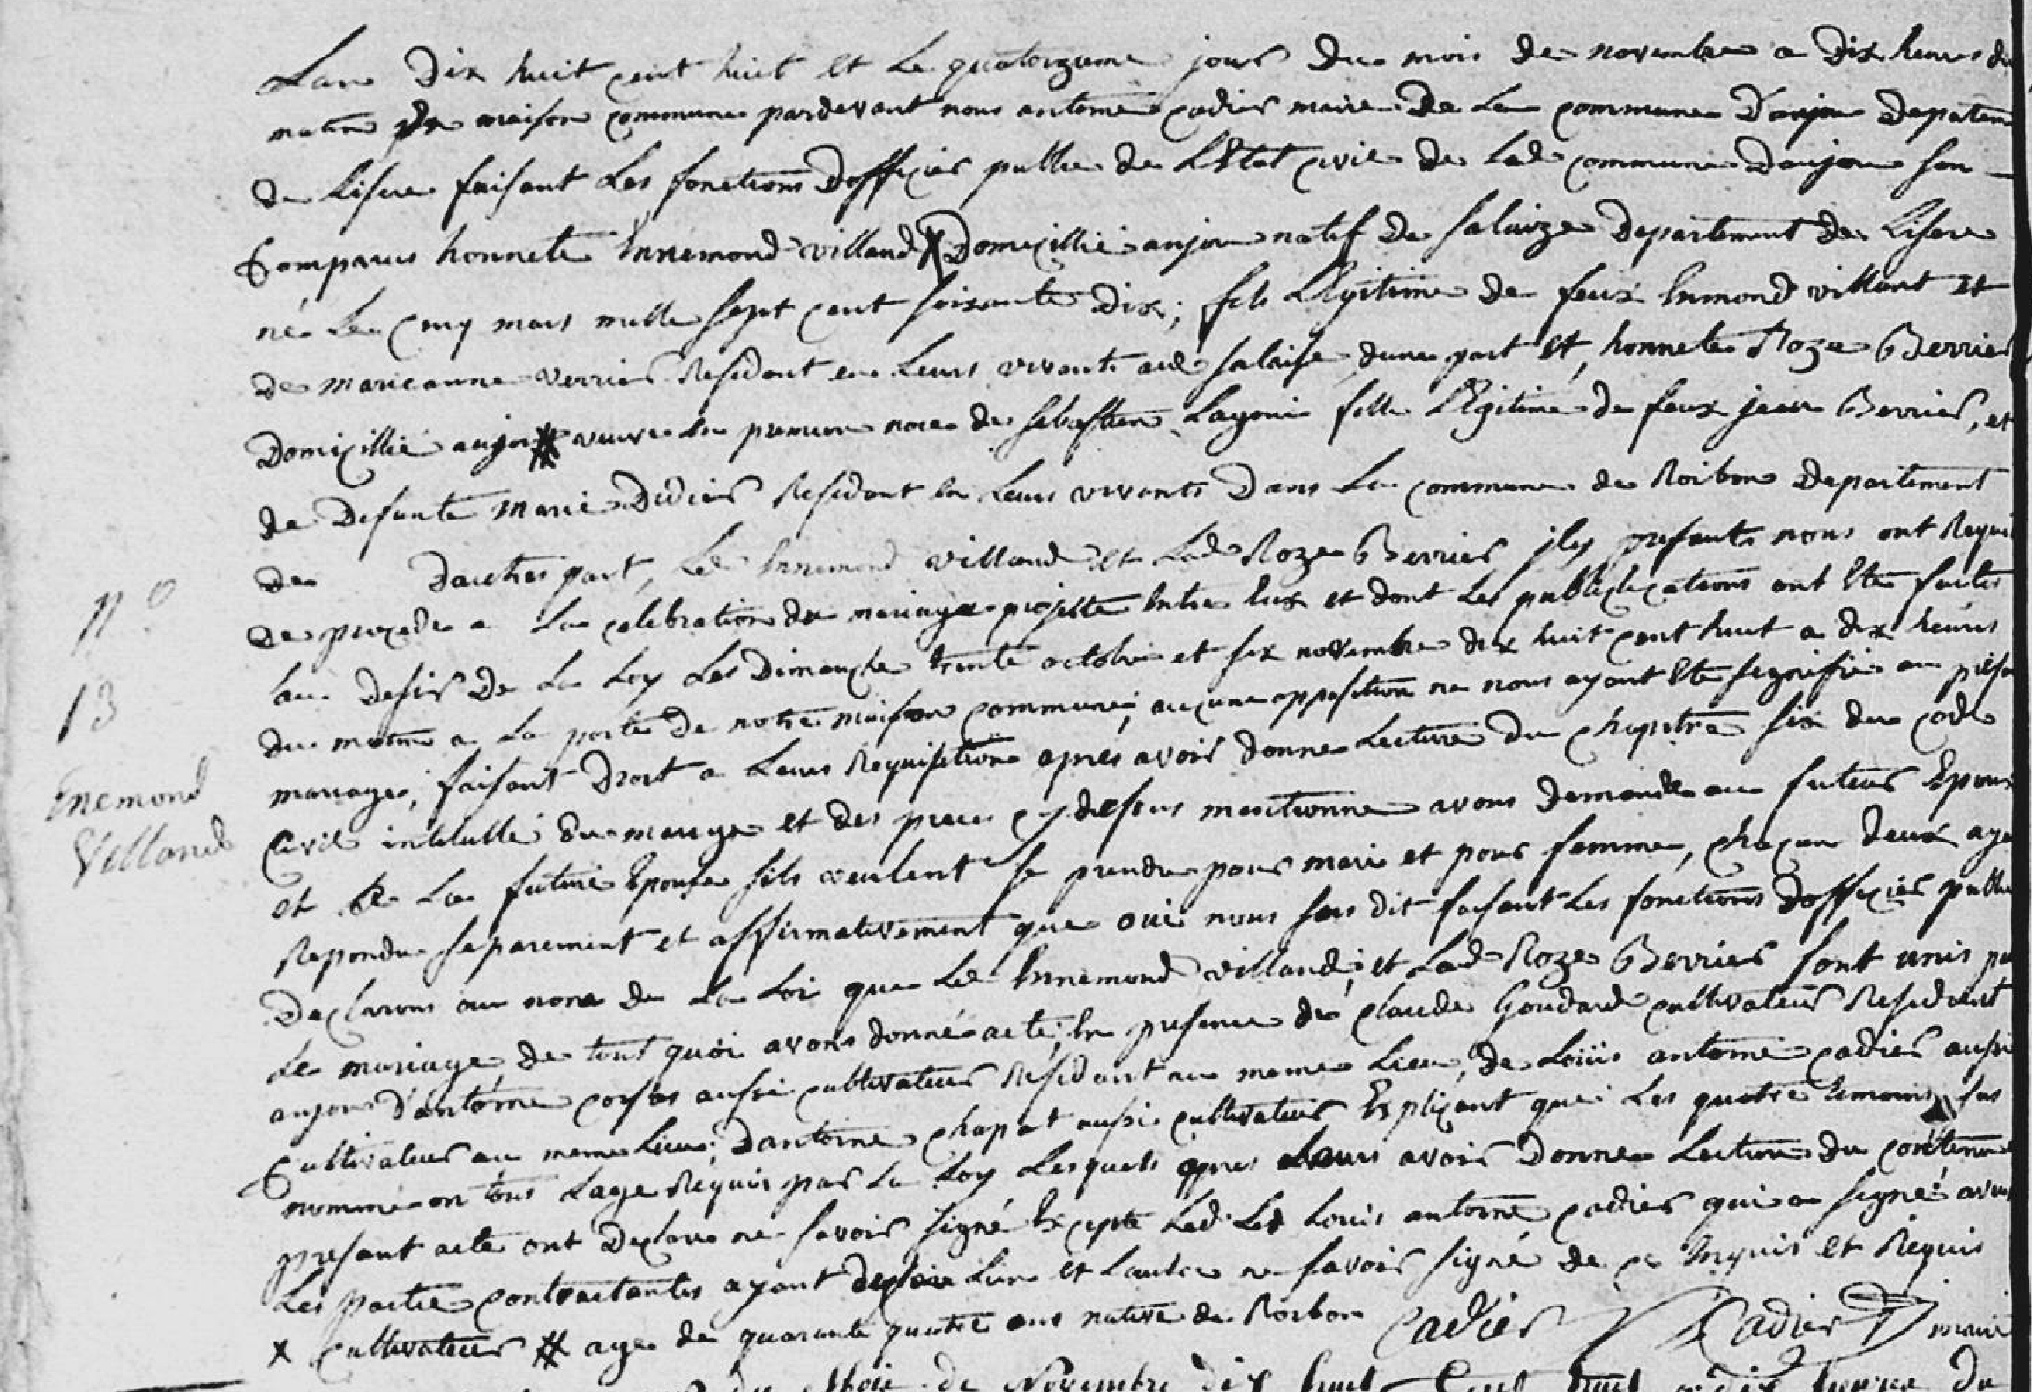 Lan dix huit cent huit et le quatorzieme jour du mois de novembre a dix heures du
matin en maison commune pardevant nous antoine cadier maire de la commune Danjou departem
de Lisere faisant Les fonctions Dofficier public de LEtat civil de Lade commune Danjou son
Comparus honnete Ennemond villand X Domicillié anjou natif de salaize Departement de Lisere
né Le cinq mars mille sept cent soixante dix ; fils LEgitime de feux Enmond villant Et
de marieanne verrier Residant en Leurs vivants aud salaise dune part Et, honnete Roze Berrier
Domicillié anjou # veuve en premiere noce de sebastien Lagoni fille LEgitime de feux jean Berrier, et
de Defunte Marie Didier Residant en Leurs vivants Dans La commune de Roibon Departement
de Dautres part, Led Ennemond villand et Lade Roze Berrier jcy presents nous ont Requi
de procede a la celebration du mariage projette Entre Eux et dont Les publications ont Ete faites
au desir De La Loy Les Dimanche trente octobre et six novembre dix huit cent huit a dix heures
du matin a La porte de notre maison commune ; aucune opposition ne nous ayant Ete signifié au present
mariage, faisant Droit a Leurs Requisition apres avoir donne Lecture du chapitre six du code
Civil intitullé du mariage et des pieces cydessus mentionne avons demande au futeur Epoux
et a La future Epouse sils veulent se prendre pour mari et pour femme, chacun deux aye
Repondu separement et affirmativement que oui nous sus dit faisant Les fonctions dofficier public
Declarons au nom de La Loi que Led Ennemond villand, et Lade Roze Berrier sont unis par
Le mariage de tout quoi avons donné acte, En presence de claude Goudard cultivateur Residant
anjou Dantoine aussi cultivateur Residant au meme Lieu, de Loüis antoine cadier aussi
Cultivateur au meme Lieu, Dantoine chapat aussi cultivateur Expliquant que Les quatre temoins sus
nommé on tous Lage Requis par La Loy Lesquels apres Leurs avoir Donne Lecture du contenu
present acte ont Declare ne savoir signé Excepte Led Louis antoine cadier qui a signé avec
Les partie contractantes ayant declare Lun et Lautre ne savoir signé de ce Enquis et Requis
X Cultivateur # age de quarante quatre ans native de Roibon Cadier Cadier maire
N°
13
Enemond
Villand
du Mois de Novembre dix huit Cent huit a dix heures du